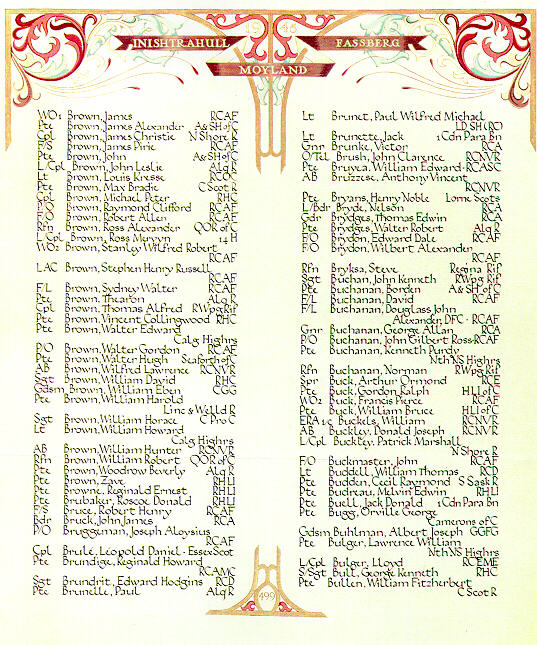 1945
INISHTRAHULL
FASSBERG
MOYLAND
WO1 Brown, James RCAF
Pte Brown, James Alexander A&SH of C
Cpl Brown, James Christie N Shore R
F/S Brown, James Pirie RCAF
Pte Brown, John A&SH of C
L/Cpl Brown, John Leslie Alq R
Lt Brown, Louis Kresse RCOC
Pte Brown, Max Bradie C Scot R
Cpl Brown, Michael Peter RHC
P/O Brown, Raymond Clifford RCAF
F/O Brown, Robert Allen RCAF
Rfn Brown, Ross Alexander QOR of C
L/Cpl Brown, Ross Mervyn 14 H
WO2 Brown, Stanley Wilfred Robert
RCAF
LAC Brown, Stephen Henry Russell
RCAF
F/L Brown, Sydney Walter RCAF
Pte Brown, Thearon Alq R
Cpl Brown, Thomas Alfred RWpgRif
Pte Brown, Vincent Collingwood RHC
Pte Brown, Walter Edward
Calg Highrs
P/O Brown, Walter Gordon RCAF
Pte Brown, Walter Hugh Seaforth of C
AB Brown, Wilfred Lawrence RCNVR
Sgt Brown, William David RHC
Gdsm Brown, William Eben CGG
Pte Brown, William Harold
Linc & Welld R
Sgt Brown, William Horace C Pro C
Lt Brown, William Howard
Calg Highrs
AB Brown, William Hunter RCNVR
Rfn Brown, William Robert QOR of C
Pte Brown, Woodrow Beverly Alq R
Pte Brown, Zave RHLI
Pte Browne, Reginald Ernest RHLI
Pte Brubaker, Roscoe Donald RHLI
F/S Bruce, Robert Henry RCAF
Bdr Bruck, John James RCA
P/O Bruggeman, Joseph Aloysius
RCAF
Cpl Brulé, Léopold Daniel - Essex Scot
Pte Brundige, Reginald Howard
RCAMC
Sgt Brundrit, Edward Hodgins RCD
Pte Brunelle, Paul Alq R
Lt Brunet, Paul Wilfred Michael
LD SH (RC)
Lt Brunette, Jack 1 Cdn Para Bn
Gnr Brunke, Victor RCA
O/Tel Brush, John Clarence RCNVR
Pte Bruyea, William Edward-RCASC
AB Bruzzese, Anthony Vincent
RCNVR
Pte Bryans, Henry Noble Lorne Scots
L/Bdr Bryde, Nelson RCA
Gdr Brydges, Thomas Edwin RCA
Pte Brydges, Walter Robert Alq R
F/O Brydon, Edward Dale RCAF
F/O Brydon, Wilbert Alexander
RCAF
Rfn Bryksa, Steve Regina Rif
Sgt Buchan, John Kenneth RWpg Rif
Pte Buchanan, Borden A& SH of C
F/L Buchanan, David RCAF
F/L Buchanan, Douglass John
Alexander, DFC - RCAF
Gnr Buchanan, George Allan RCA
P/O Buchanan, John Gilbert Ross-RCAF
Pte Buchanan, Kenneth Purdy
Nth NS Highrs
Rfn Buchanan, Norman RWpg Rif
Spr Buck, Arthur Ormond RCE
Pte Buck, Gordon Ralph HLI of C
WO2 Buck, Francis Pierce RCAF
Pte Buck, William Bruce HLI of C
ERA 4c Buckels, William RCNVR
AB Buckley, Donald Joseph RCNVR
L/Cpl Buckley, Patrick Marshall
N Shore R
F/O Buckmaster, John RCAF
Lt Buddell, William Thomas RCD
Pte Budden, Cecil Raymond S Sask R
Pte Budreau, Melvin Edwin RHLI
Pte Buell, Jack Donald 1 Cdn Para Bn
Pte Bugg, Orville George
Camerons of C
Gdsm Buhlman, Albert Joseph GGFG
Pte Bulger, Lawrence William
Nth NS Highrs
L/Cpl Bulger, Lloyd RCEME
S/Sgt Bull, George Kenneth RHC
Pte Bullen, William Fitzherbert
C Scot R
499